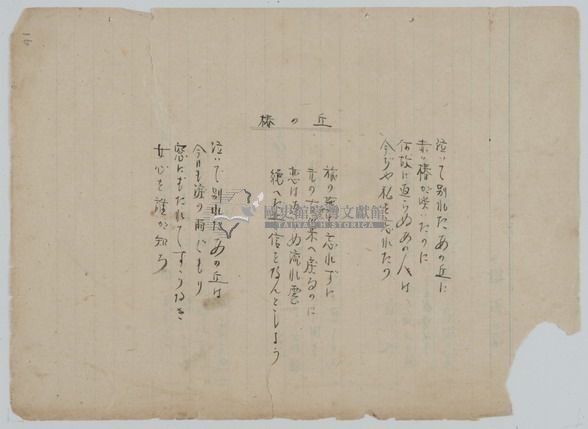 椿の丘
泣いて別れたあの丘に
赤い椿が咲いたのに
何故に返らぬあの人は
今ぢや私を忘れたか
旅の燕も忘れずに
元の古巣へ戻るのに
恋は返らぬ流れ雲
絶へた 信を なんとしよう
泣いて別れたあの丘は
今日も の雨ごもり
窓にもたれてすゝりなき
女心を誰が知ろ
國史館臺灣文獻館
TAIWAN HISTORICA